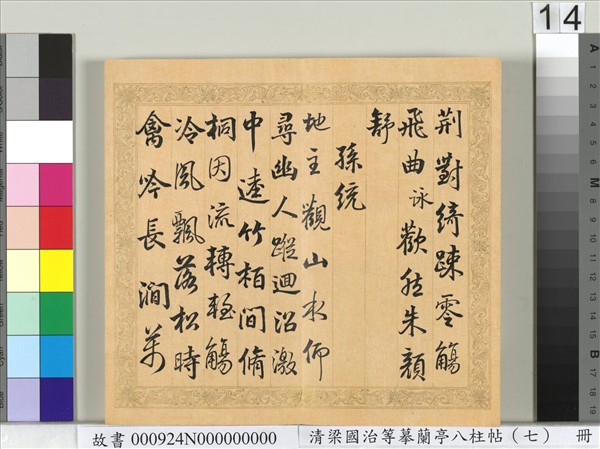 14
荊對綺踈零觴
飛曲詠歡然朱顏
舒
孫統
地主觀山水仰
尋幽人蹤迴沼激
中逵竹栢間脩
桐因流轉輕觴
冷風飄落松時
禽吟長澗萬
故書 000924N000000000
清梁國治等摹蘭亭八柱帖（七） 冊